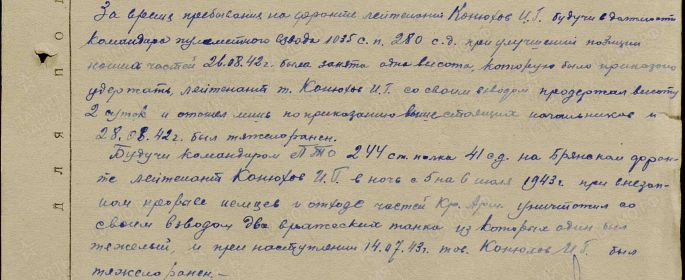 За время пребывания на фронте лейтенант Конюхов И.Г. будучи в должности
командира пулеметного взвода 1035 с.п. 280 с.д. при улучшении позиции
наших частей 26.08.42г. была занята одна высота, которую было приказано
удержать, лейтенант т. Конюхов И.Г. со своим взводом продержал высоту
2 суток и отошел лишь по приказанию вышестоящих начальников и
28.08.42г. был тяжело ранен.
Будучи командиром ПТО 244 ст. полка 41 с.д. на Брянском фрон-
те лейтенант Конюхов И.Г. в ночь с 5 на 6 июля 1943г. при внезап-
ном прорыве немцев и отходе частей Кр. Арм. уничтожил со
своим взводом два вражеских танка из которых один был
тяжелый, и при наступлении 14.07.43г. тов. Конюхов И.Г. был
тяжело ранен.-
для по